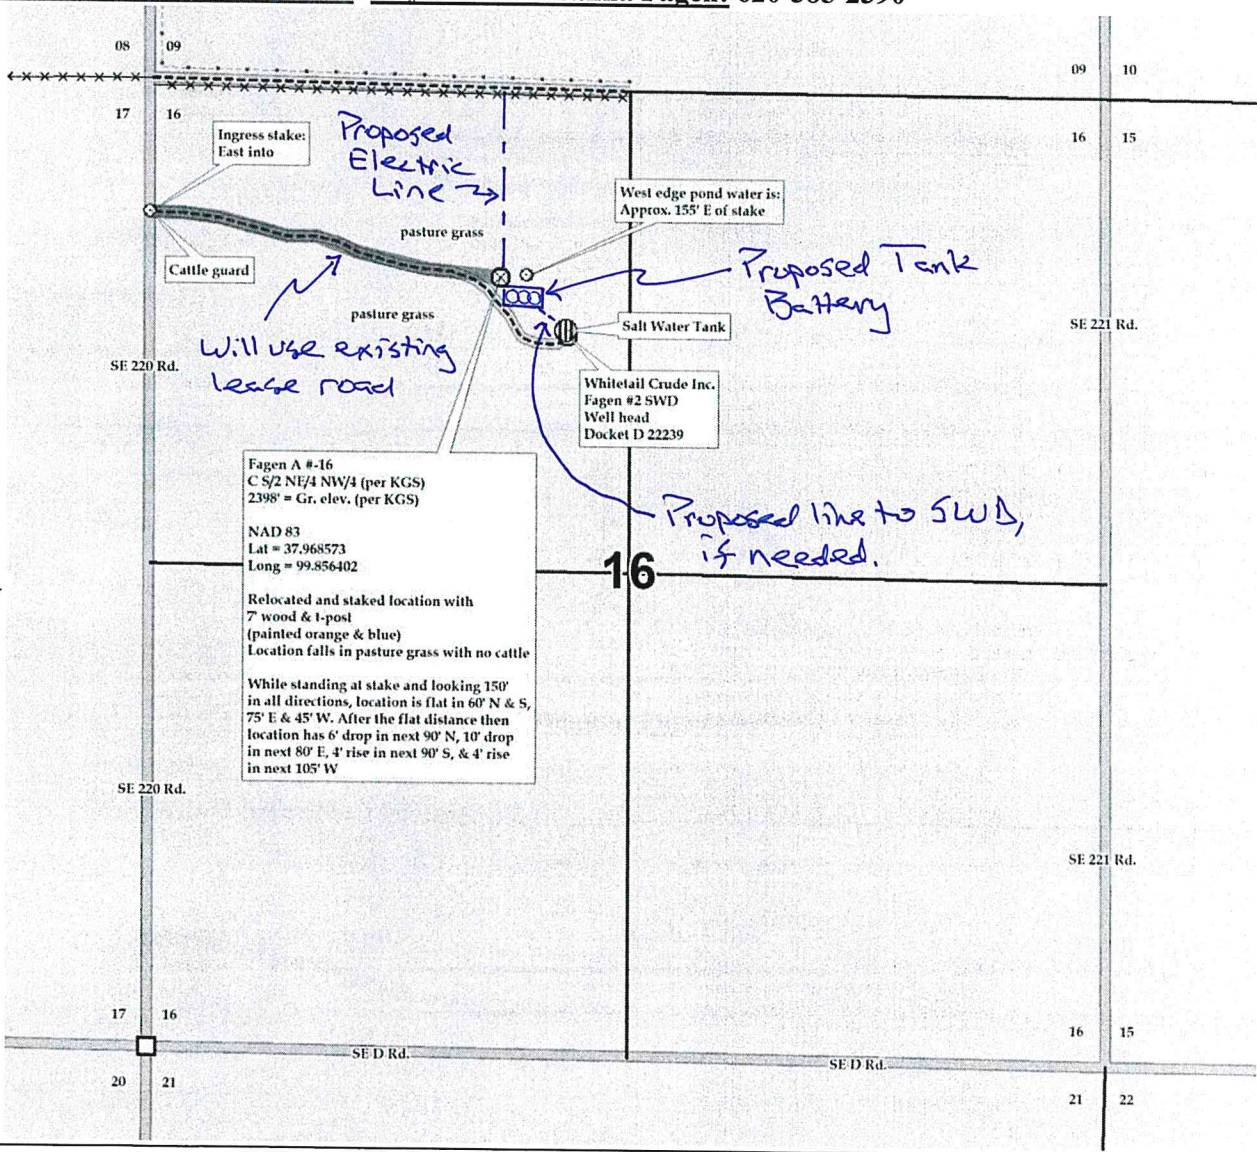 620-385-2390
08 09
09 10
17 16
16 15
Ingress stake:
East into
Proposed
Electric
Line
West edge pond water is:
Approx. 155' E of stake
pasture grass
Cattle guard
Proposed Tank
Battery
pasture grass
Salt Water Tank
SE 221 Rd.
Will use existing
lease road
SE 220 Rd.
Whitetail Crude Inc.
Fagen #2 SWD
Well head
Docket D 22239
Fagen A #-16
C S/2 NE/4 NW/4 (per KGS)
2398' = Gr. elev. (per KGS)
NAD 83
Lat = 37.968573
Long = 99.856402
Proposed line to SWD,
if needed.
16
Relocated and staked location with
7' wood & t-post
(painted orange & blue)
Location falls in pasture grass with no cattle
While standing at stake and looking 150'
in all directions, location is flat in 60' N & S,
75' E & 45' W. After the flat distance then
location has 6' drop in next 90' N, 10' drop
in next 80' E, 4' rise in next 90' S, & 4' rise
in next 105' W
SE 220 Rd.
SE 221 Rd.
17 16
16 15
SE D Rd.
SE D Rd.
20 21
21 22